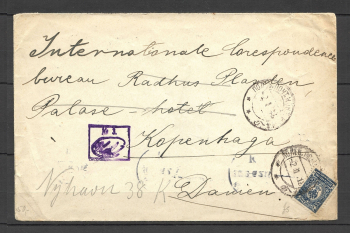 Internationale Corespondence
bureau Radhus Pladsen
Palase hotel
№ 3.
Kopenhaga
Nyhavn 38 K Danien